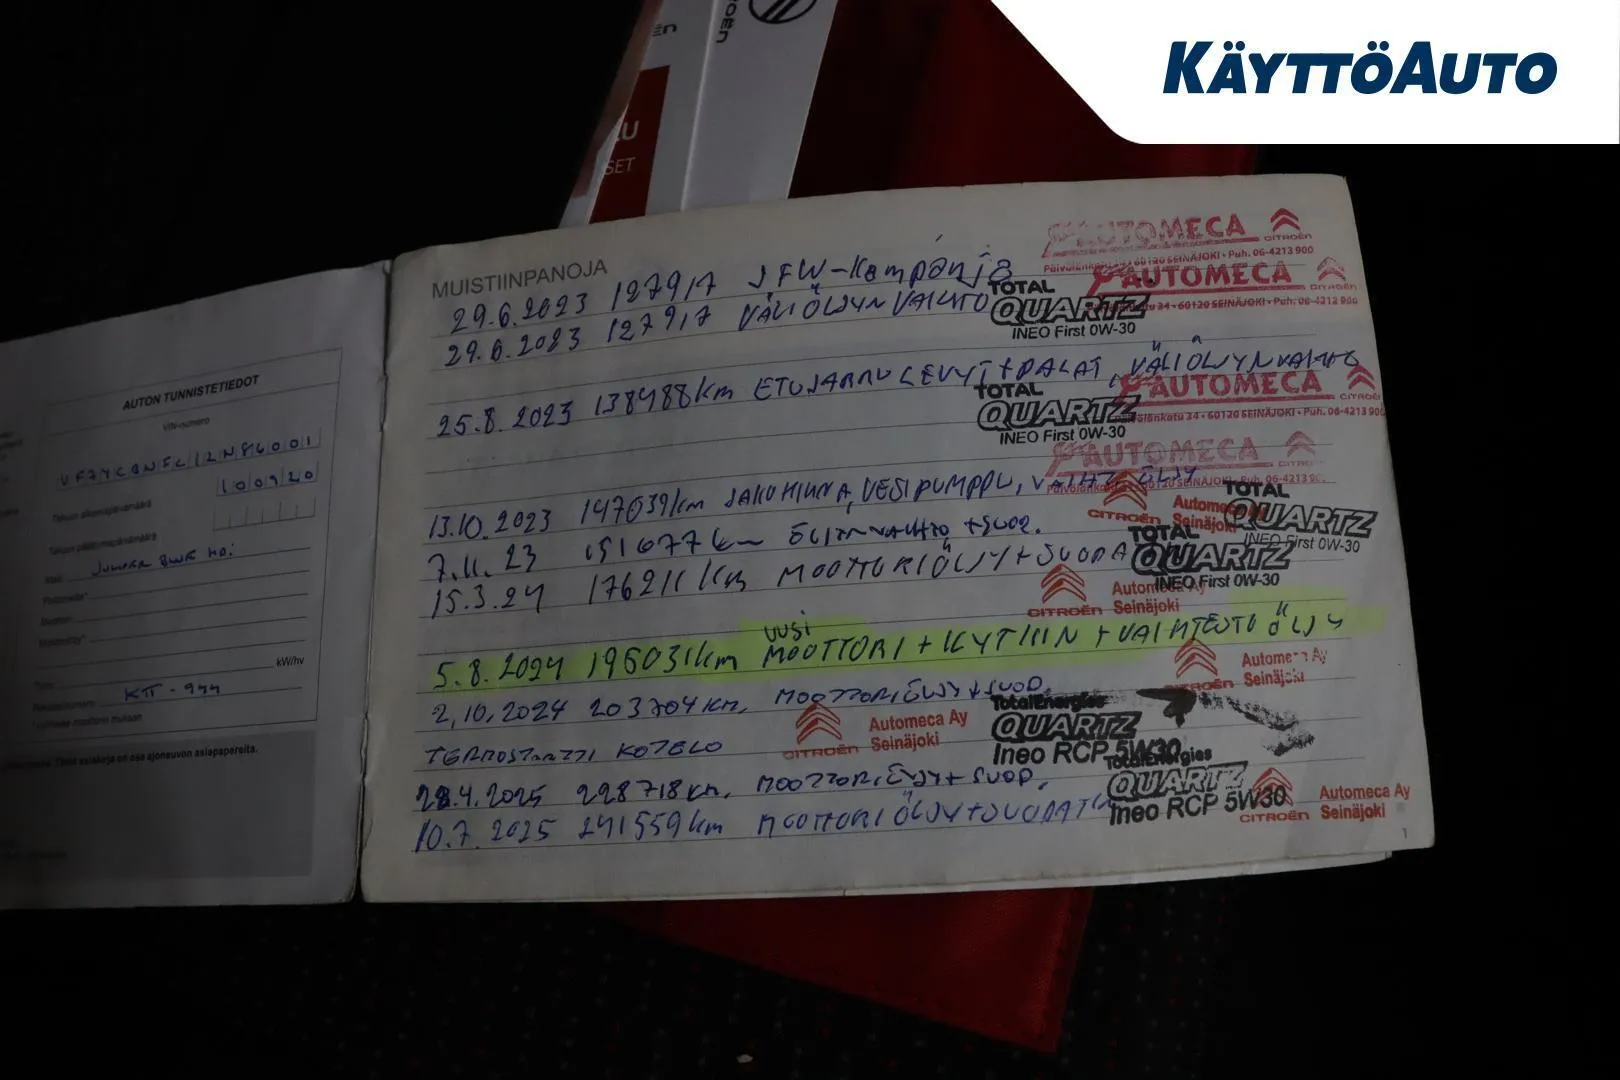 KÄYTTÖAUTO
CITROËN
SET
AUTON TUNNISTETIEDOT
VIN-numero
100920
Takuun alkamispäivämäärä
Takuun päättymispäivämäärä
Malli JUMPER BLUE HDI
kW/hv
ajoneuvon asiapapereita.
MUISTIINPANOJA
29.6.2023 127917 JFW-Kampanja
29.6.2023 127917 VÄLIÖLJYN VAIHTO
25.8.2023 138488km ETUJARRULEVYT+PALAT, VÄLIÖLJYNVAIHTO
13.10.2023 147039km JAKOHIHNA, VESIPUMPPU, VAIHT. ÖLJY
7.11.23 151677km ÖLJYNVAIHTO +SUOD.
15.3.24 176211km MOOTTORIÖLJY+SUODA
UUSI
5.8.2024 196031km MOOTTORI + KYTKIN + VAIHTEISTOÖLJY
2.10.2024 203704KM, MOOTTORIÖLJY+SUOD.
TERMOSTAATTI KOTELO
28.4.2025 228718KM, MOOTTORIÖLJY+SUOD.
10.7.2025 241559km MOOTTORIÖLJY+SUODATIN
AUTOMECA CITROËN
Päivölänkatu 34 • 60120 SEINÄJOKI • Puh. 06-4213 900
AUTOMECA CITROËN
Päivölänkatu 34 • 60120 SEINÄJOKI • Puh. 06-4213 900
TOTAL
QUARTZ
INEO First 0W-30
AUTOMECA CITROËN
Päivölänkatu 34 • 60120 SEINÄJOKI • Puh. 06-4213 900
TOTAL
QUARTZ
INEO First 0W-30
AUTOMECA CITROËN
CITROËN Automeca Seinäjoki
TOTAL
QUARTZ
INEO First 0W-30
TOTAL
QUARTZ
INEO First 0W-30
CITROËN Automeca Ay Seinäjoki
CITROËN Automeca Ay Seinäjoki
CITROËN Automeca Ay Seinäjoki
TotalEnergies
QUARTZ
Ineo RCP 5W30
TotalEnergies
QUARTZ
Ineo RCP 5W30
CITROËN Automeca Ay Seinäjoki
1